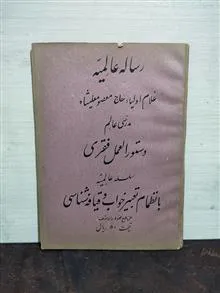 رساله عالمیّه
غلام اولیاء حاج معصومعلیشاه
مدرسی عالم
دستورالعمل فقری
سلسله عالمیّه
بانظمام تعبیر خواب و قیافه شناسی
قیمت ۵۰ ریال